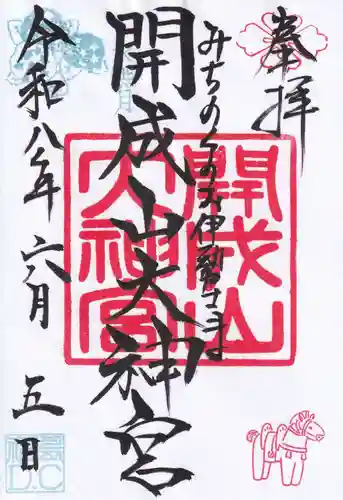 奉拝
みちのくのお伊勢さま
開成山大神宮
開成山
大神宮
令和八年六月五日